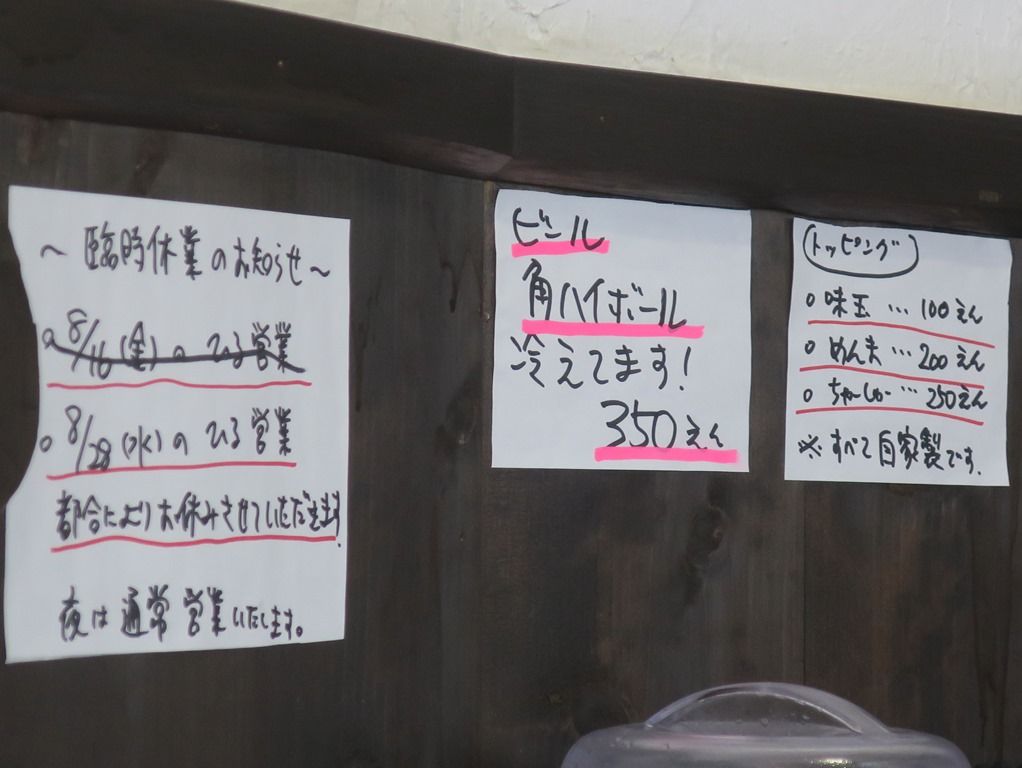 ～臨時休業のお知らせ～
○8/16(金)のひる営業
○8/28(水)のひる営業
都合によりお休みさせていただきます!
夜は通常営業いたします。
ビール
角ハイボール
冷えてます!
350えん
トッピング
○味玉…100えん
○めんま…200えん
○ちゃーしゅー…250えん
※すべて自家製です.